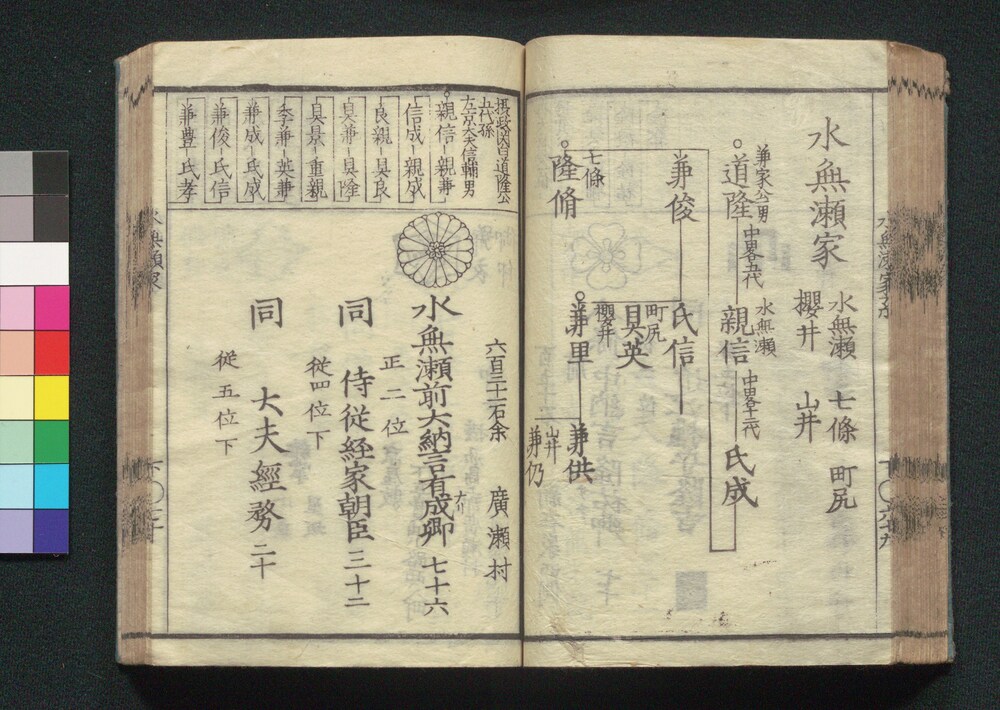 水無瀬家
水無瀬 七條 町尻
櫻井 山井
兼家公男
道隆 中畧五代
水無瀬
親信 中畧十二代 氏成
兼俊 氏信
町尻
具英
七條
隆脩
櫻井
兼里
兼供
山井
兼仍
摂政関白道隆公
五代孫
左京大夫信輔男
親信 親兼
信成 親成
良親 具良
具兼 具隆
具景 重親
季兼 英兼
兼成 氏成
兼俊 氏信
兼豊 氏孝
六百三十一石余 廣瀬村
水無瀬前大納言有成卿 七十六
正二位
同 侍従経家朝臣 三十二
従四位下
同 大夫經務 二十
従五位下
水無瀬家